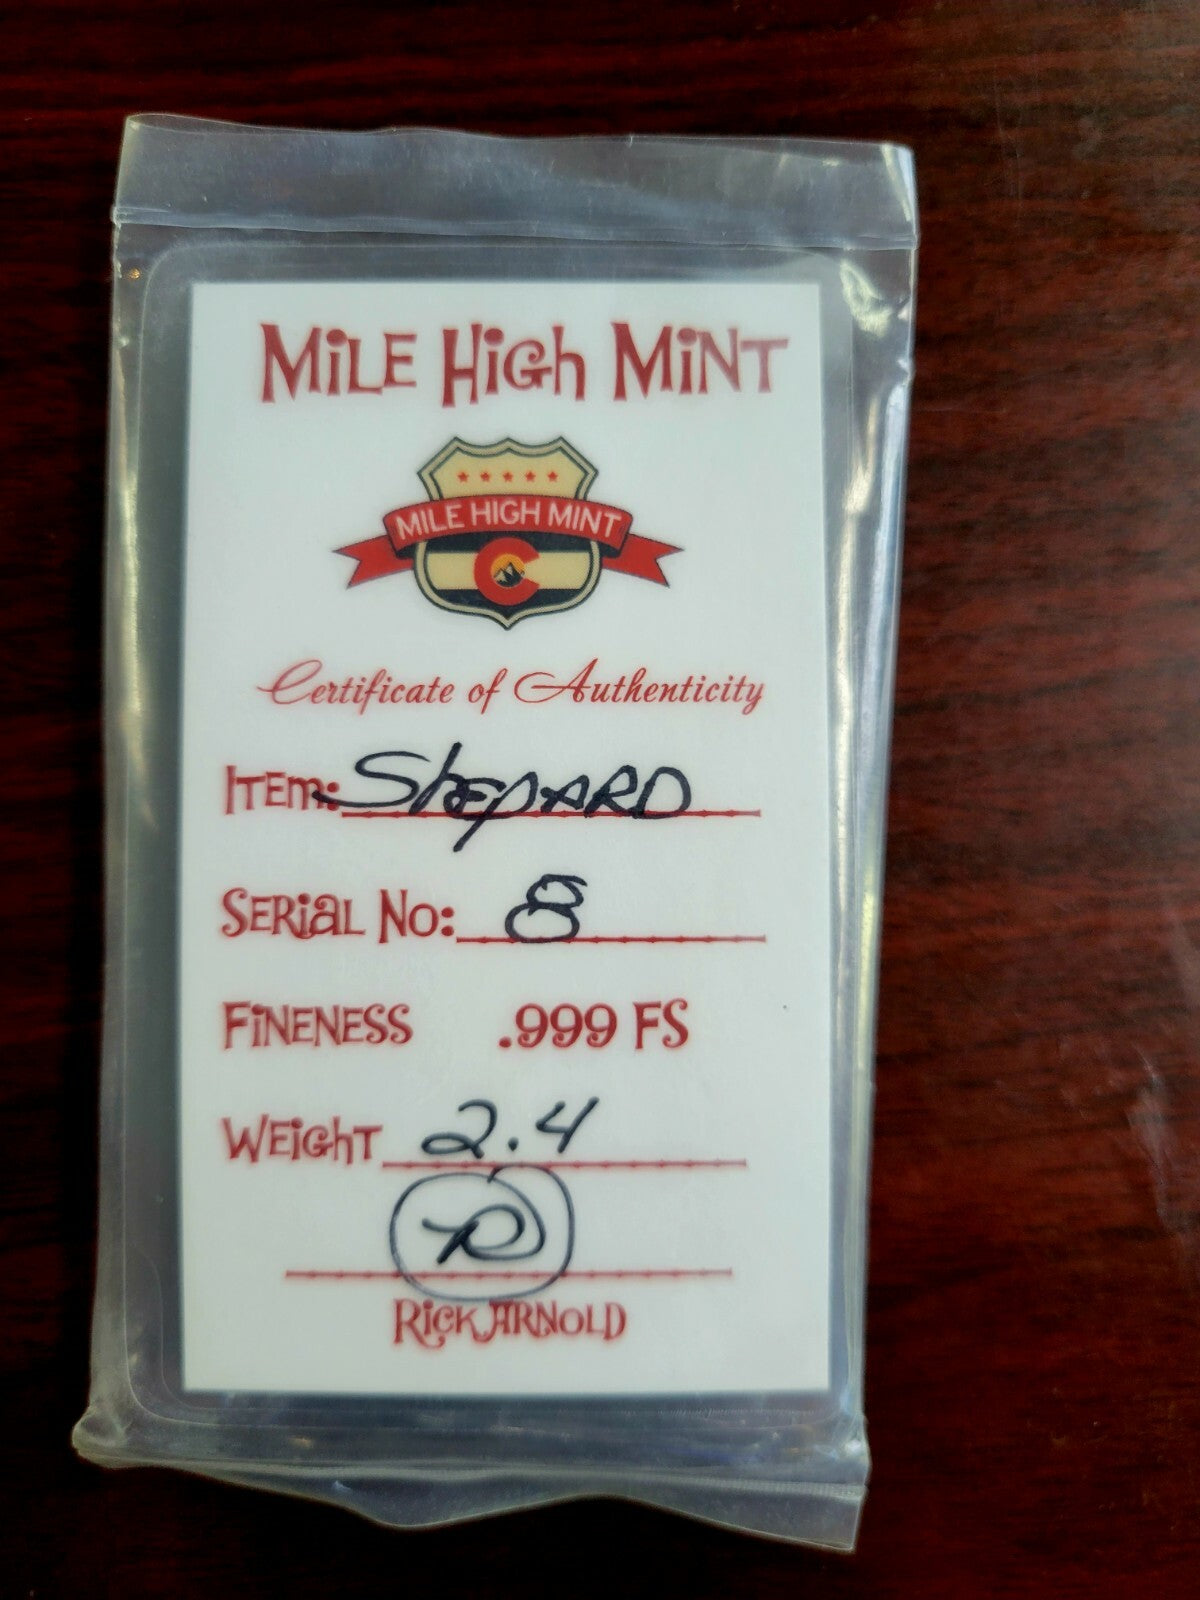 MiLE HiGh MiNT
MILE HIGH MINT
C
Certificate of Authenticity
ITEM: ShEpARD
SERiaL No: 8
FiNENESS .999 FS
WEiGhT 2.4
R
RiCK ARNOLD